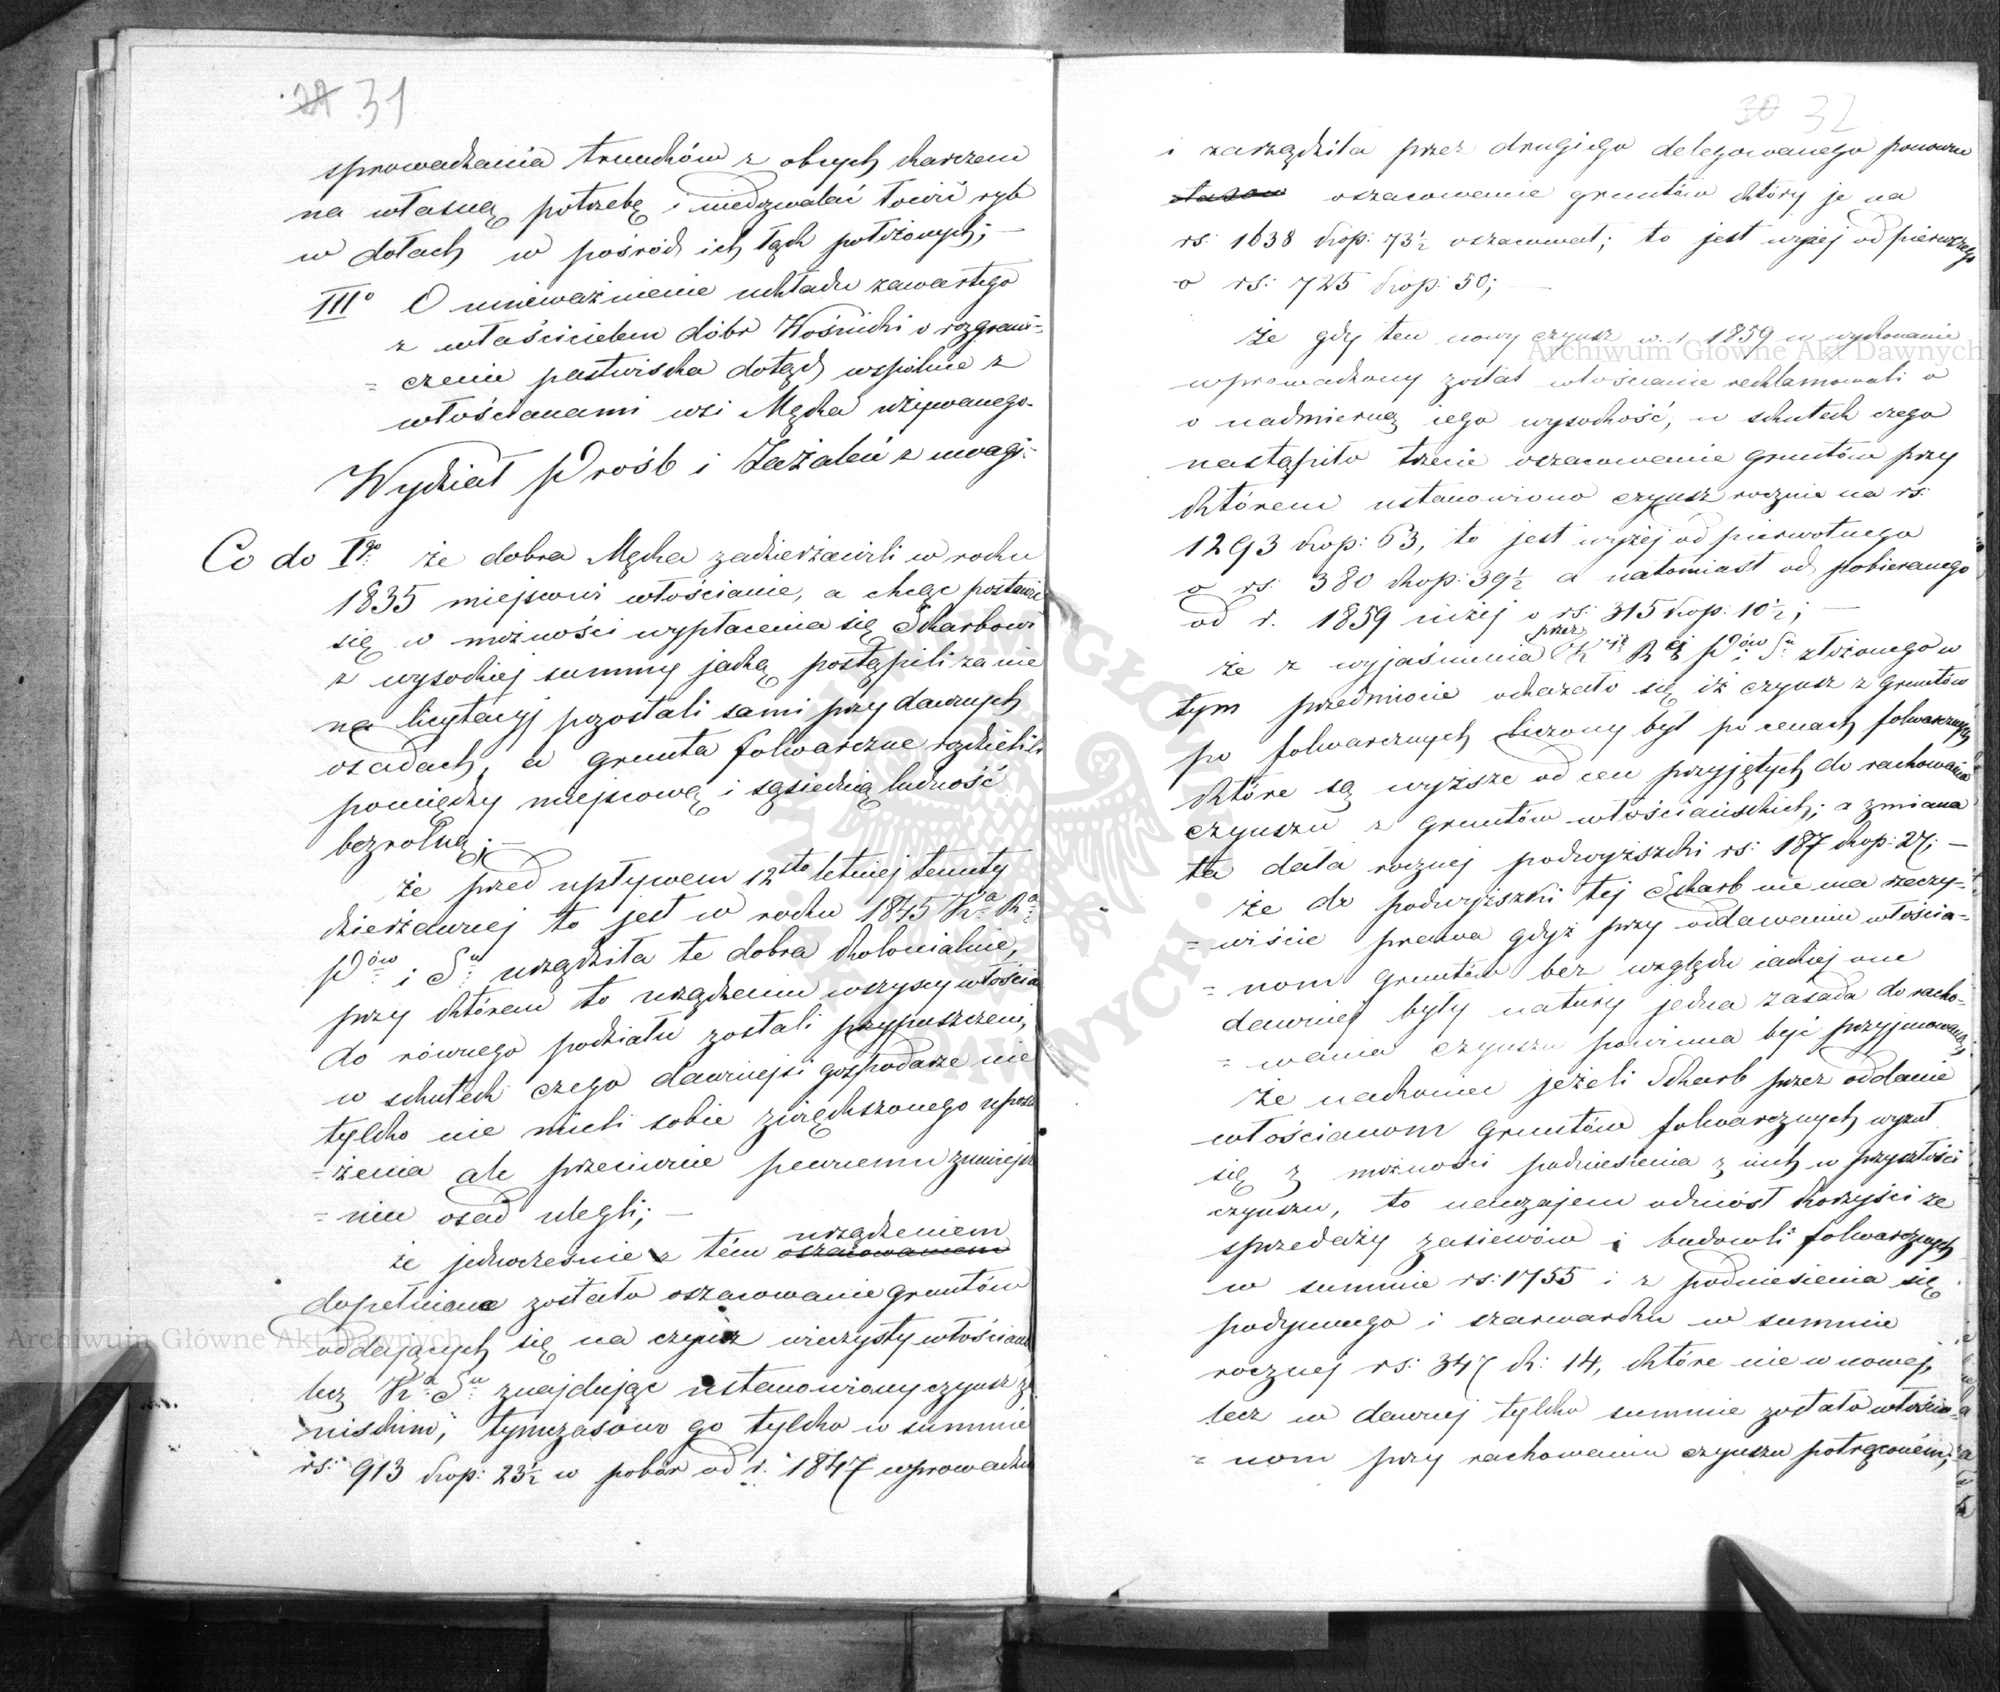 29 31
sprowadzania trunków z obcych karczem
na własną potrzebę i niedozwalać łowić ryb
w dołach w pośród ich łąk położonych; –
III° O unieważnienie układu zawartego
z właścicielem dóbr Woźniki o rozgrani-
= czenie pastwiska dotąd wspólnie z
włościanami wsi Męcka używanego.
Wydział Próśb i Zażaleń z uwagi:
Co do Igo: że dobra Męcka zadzierżawili w roku
1835 miejscowi włościanie, a chcąc postawić
się w możności wypłacenia się Skarbowi
z wysokiej summy jaką postąpili za nie
na licytacyj pozostali sami przy dawnych
osadach, a grunta folwarczne rozdzielili
pomiędzy miejscową i sąsiednią ludność
bezrolną; –
że przed upływem 12sto letniej tenuty
dzierżawnej to jest w roku 1845 Ka Ra
Pów i Su urządziła te dobra kolonialnie,
przy którem to urządzeniu wszyscy włościa
do równego podziału zostali przypuszczeni,
w skutek czego dawniejsi gospodarze nie
tylko nie mieli sobie zwiększonego uposa
= żenia ale przeciwnie pewnemu zmniejsze
= niu osad ulegli; –
że jednocześnie z tém oszacowaniem urządzeniem
dopełniane zostało oszacowanie gruntów
oddających się na czynsz wieczysty włościano
lecz Ka Su znajdując ustanowiony czynsz z
niskim, tymczasowo go tylko w summie
rs: 913 kop: 23½ w pobór od r. 1847 wprowadził
30 32
i zarządziła przez drugiego delegowanego ponowne
oszacowanie gruntów który je na
rs: 1638 kop: 73½ oszacował; to jest wyżej od pierwszego
o rs: 725 kop: 50; –
Że gdy ten nowy czynsz w r. 1859 w wykonanie
wprowadzony został włościanie reklamowali o
o nadmierną jego wysokość, w skutek czego
nastąpiło trzecie oszacowanie gruntów przy
którem ustanowiono czynsz rocznie na rs:
1293 kop: 63, to jest wyżej od pierwotnego
o rs: 380 kop: 39½ a natomiast od pobieranego
od r. 1859 niżej o rs: 315 kop: 10½; –
że z wyjaśnienia przez Kję Rę Pów Su złożonego w
tym przedmiocie okazało się iż czynsz z gruntów
po folwarcznych liczony był po cenach folwarcznych
które są wyższe od cen przyjętych do rachowania
czynszu z gruntów włościańskich; a zmiana
ta dała rocznej podwyżki rs: 187 kop: 27; –
że do podwyżki tej Skarb nie ma rzeczy-
= wiście prawa gdyż przy oddawaniu włościa-
= nom gruntów bez względu jakiej one
dawniej były natury jedna zasada do racho-
= wania czynszu powinna być przyjmowaną,
Że nakoniec jeżeli Skarb przez oddanie
włościanom gruntów folwarcznych wyzuł
się z możności podniesienia z nich w przyszłości
czynszu, to nawzajem odniósł korzyści ze
sprzedaży zasiewów i budowli folwarcznych
w summie rs: 1755 i z podniesienia się
podymnego i szarwarku w summie
rocznej rs: 347 k: 14, które nie w nowej,
lecz w dawnej tylko summie zostało włościa-
= nom przy rachowaniu czynszu potrąconém;
Archiwum Główne Akt Dawnych
Archiwum Główne Akt Dawnych
ARCHIWUM GŁÓWNE AKT DAWNYCH